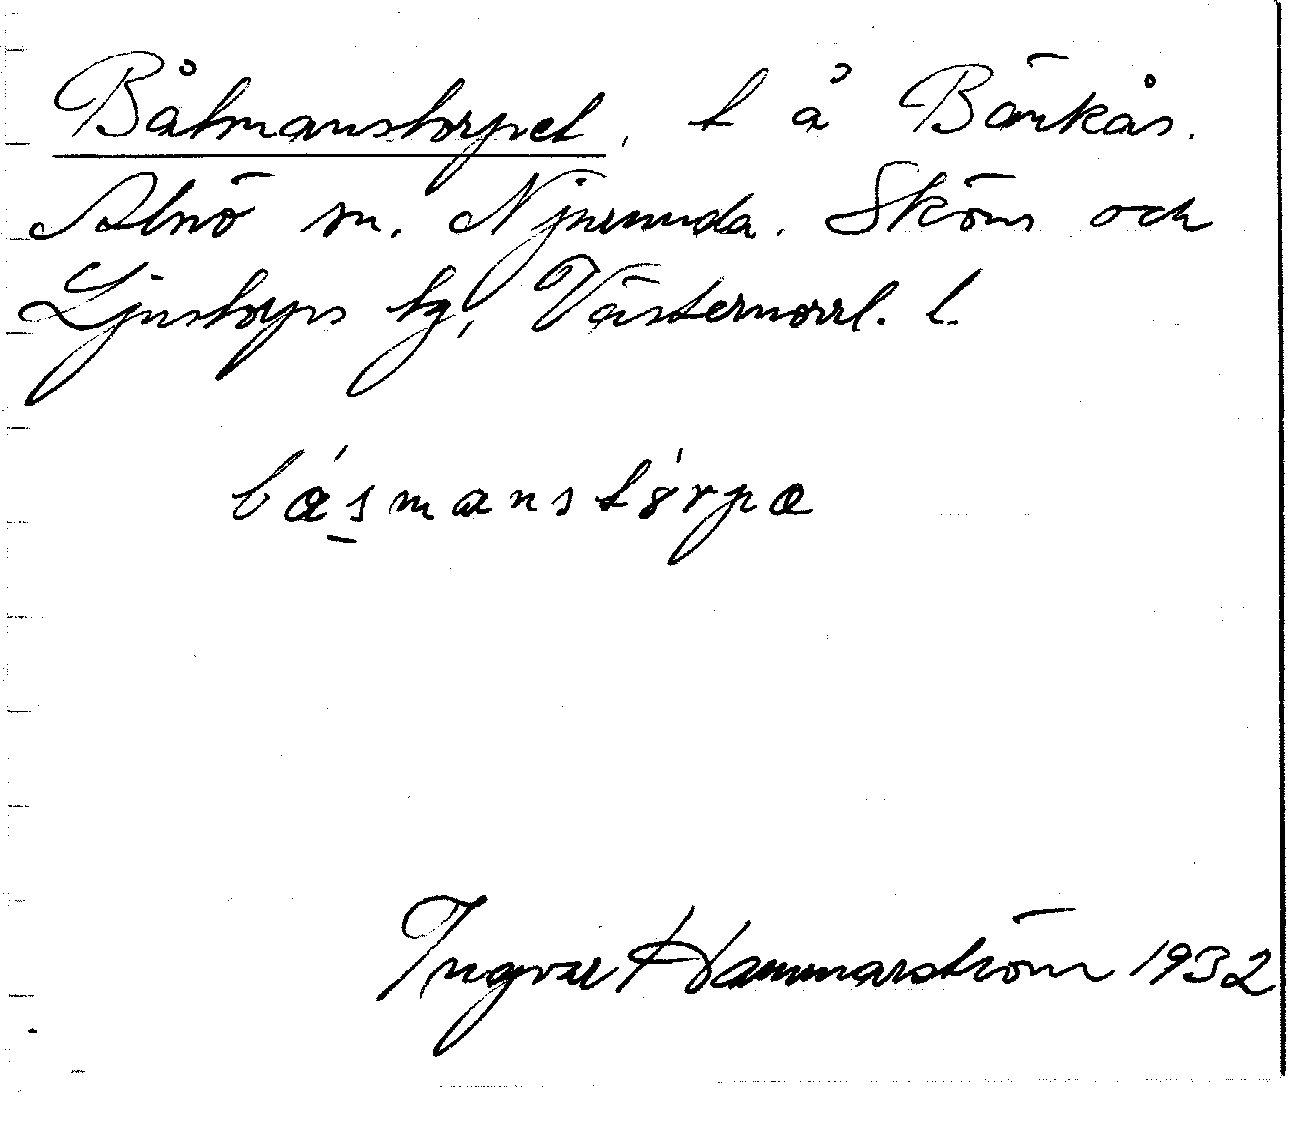 Båtmanstorpet, t å Bänkås.
Alnö sn. Njurunda. Sköns och
Ljustorps tg, Västernorrl. l.
Ingvar Hammarström 1932